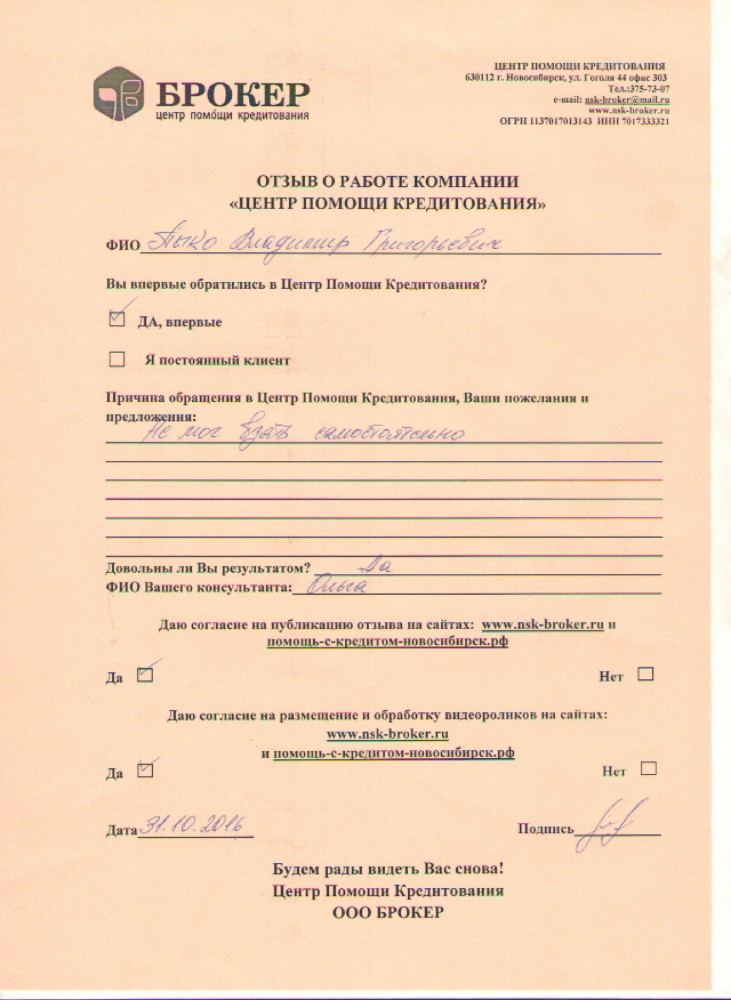 БРОКЕР
центр помощи кредитования
ЦЕНТР ПОМОЩИ КРЕДИТОВАНИЯ
630112 г. Новосибирск, ул. Гоголя 44 офис 303
Тел.:375-73-07
e-mail: nsk-broker@mail.ru
www.nsk-broker.ru
ОГРН 1137017013143 ИНН 7017333321
ОТЗЫВ О РАБОТЕ КОМПАНИИ
«ЦЕНТР ПОМОЩИ КРЕДИТОВАНИЯ»
ФИО Пыко Владимир Григорьевич
Вы впервые обратились в Центр Помощи Кредитования?
ДА, впервые
Я постоянный клиент
Причина обращения в Центр Помощи Кредитования, Ваши пожелания и
предложения:
Не мог взять самостоятельно
Довольны ли Вы результатом? Да
ФИО Вашего консультанта: Ольга
Даю согласие на публикацию отзыва на сайтах: www.nsk-broker.ru и
помощь-с-кредитом-новосибирск.рф
Да Нет
Даю согласие на размещение и обработку видеороликов на сайтах:
www.nsk-broker.ru
и помощь-с-кредитом-новосибирск.рф
Да Нет
Дата 31.10.2016 Подпись
Будем рады видеть Вас снова!
Центр Помощи Кредитования
ООО БРОКЕР